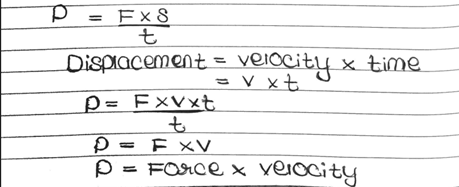 P = F×S
t
Displacement = velocity × time
= v × t
P = F×V×t
t
P = F ×V
P = Force × velocity